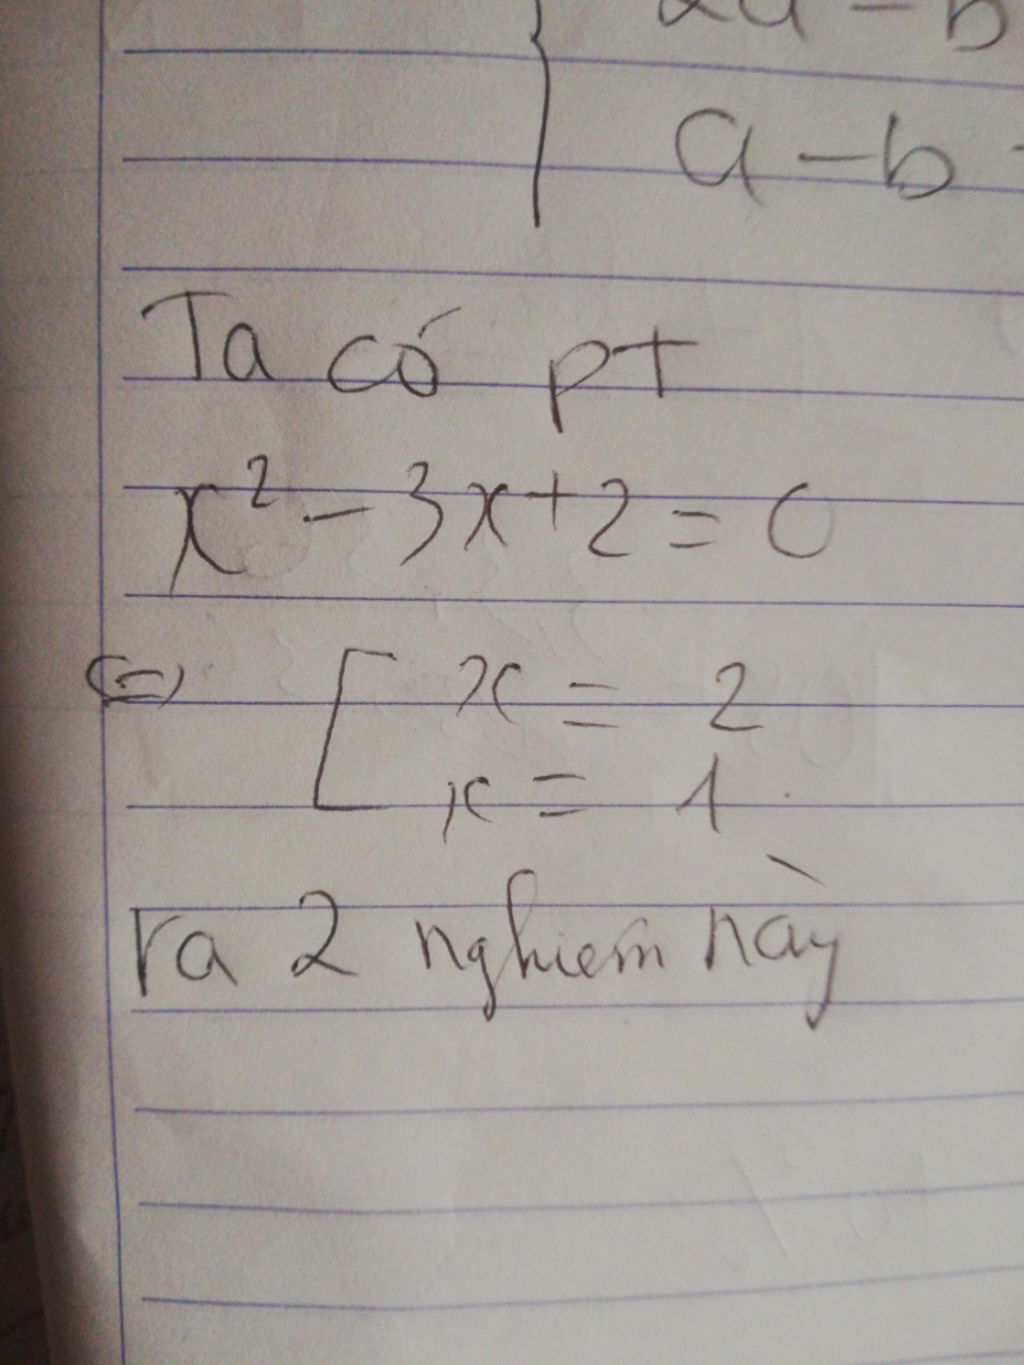 2a - b
a - b
Ta có pt
x² - 3x + 2 = 0
<=> [ x = 2
x = 1.
ra 2 nghiem này